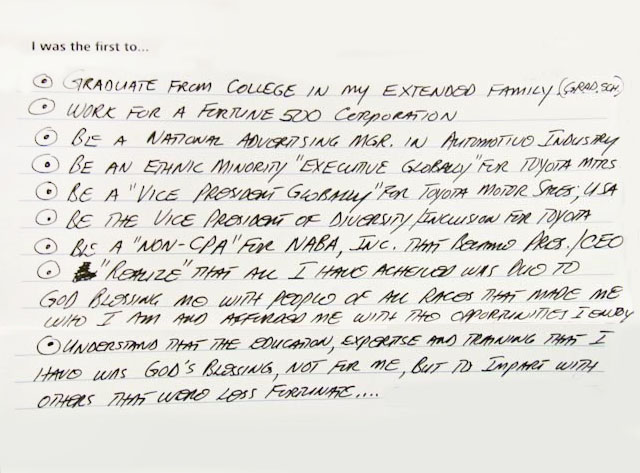 I was the first to...
GRADUATE FROM COLLEGE IN MY EXTENDED FAMILY (GRAD. SCH.)
WORK FOR A FORTUNE 500 CORPORATION
BE A NATIONAL ADVERTISING MGR. IN AUTOMOTIVE INDUSTRY
BE AN ETHNIC MINORITY "EXECUTIVE GLOBALLY" FOR TOYOTA MTRS
BE A "VICE PRESIDENT GLOBALLY" FOR TOYOTA MOTOR SALES, USA
BE THE VICE PRESIDENT OF DIVERSITY/INCLUSION FOR TOYOTA
BE A "NON-CPA" FOR NABA, INC. THAT BECAME PRES./CEO
"REALIZE" THAT ALL I HAVE ACHEIVED WAS DUE TO
GOD BLESSING ME WITH PEOPLE OF ALL RACES THAT MADE ME
WHO I AM AND AFFORDED ME WITH THE OPPORTUNITIES I ENJOY
UNDERSTAND THAT THE EDUCATION, EXPERTISE AND TRAINING THAT I
HAVE WAS GOD'S BLESSING, NOT FOR ME, BUT TO IMPART WITH
OTHERS THAT WERE LESS FORTUNATE....